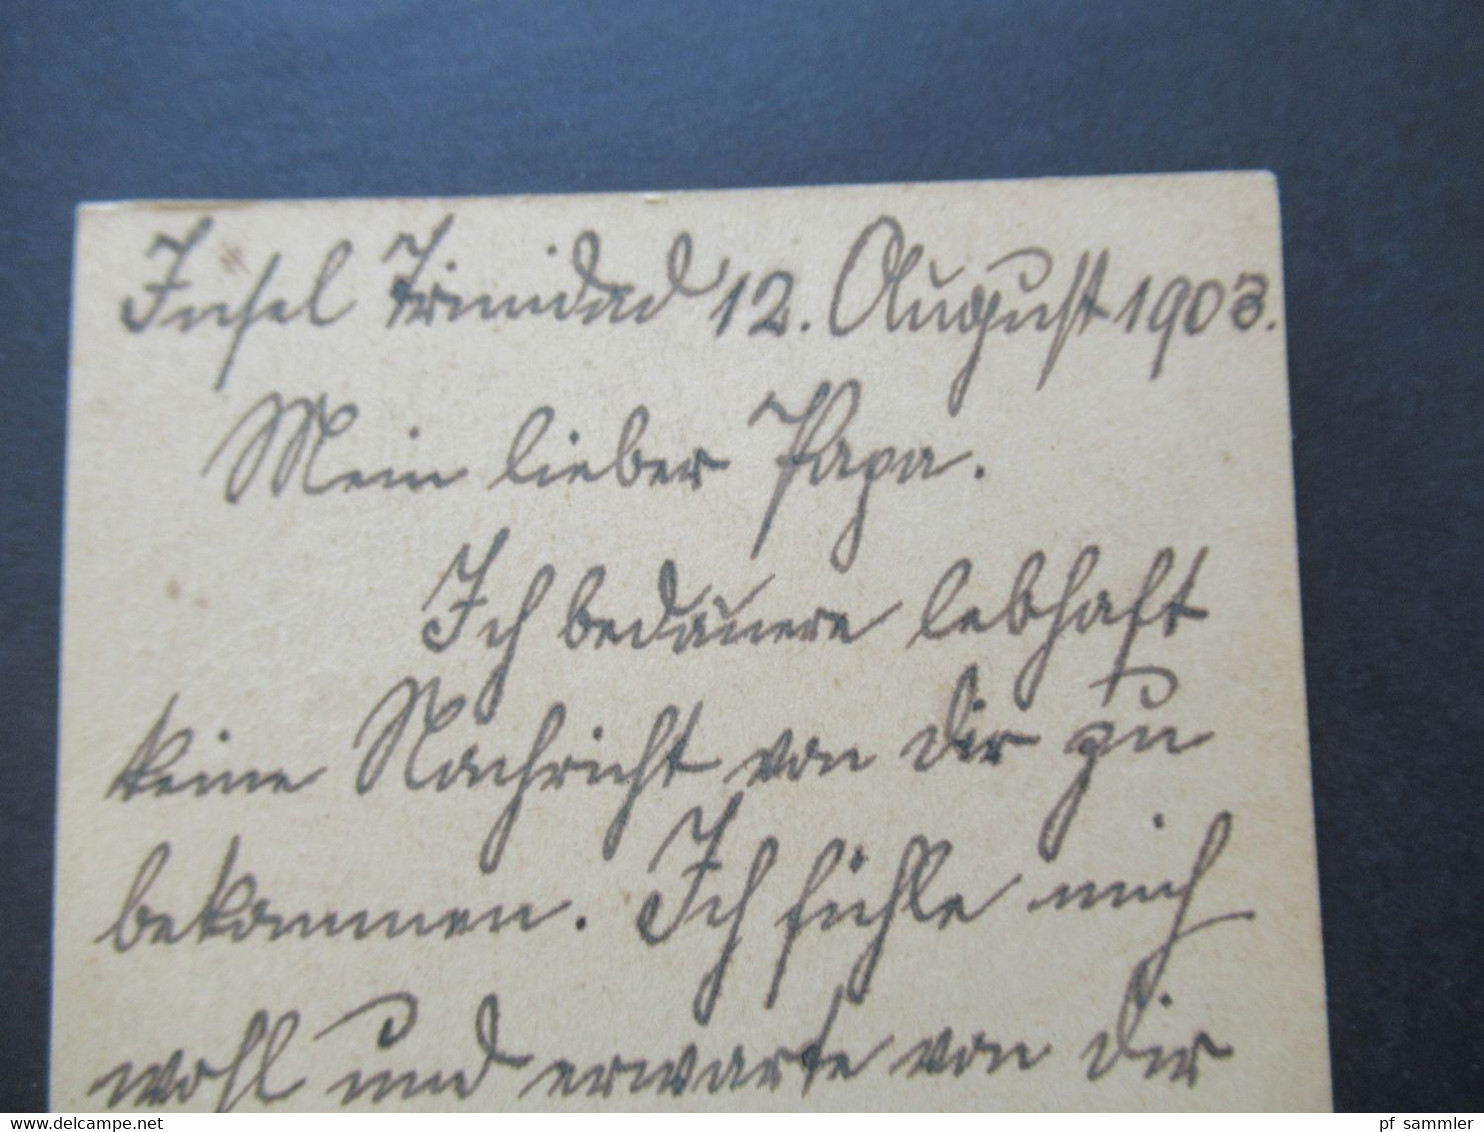 Insel Trinidad 12. August 1903.
Mein lieber Papa.
Ich bedauere lebhaft
keine Nachricht von dir zu
bekommen. Ich fühle mich
wohl und erwarte von dir
www.delcampe.net
pf_sammler